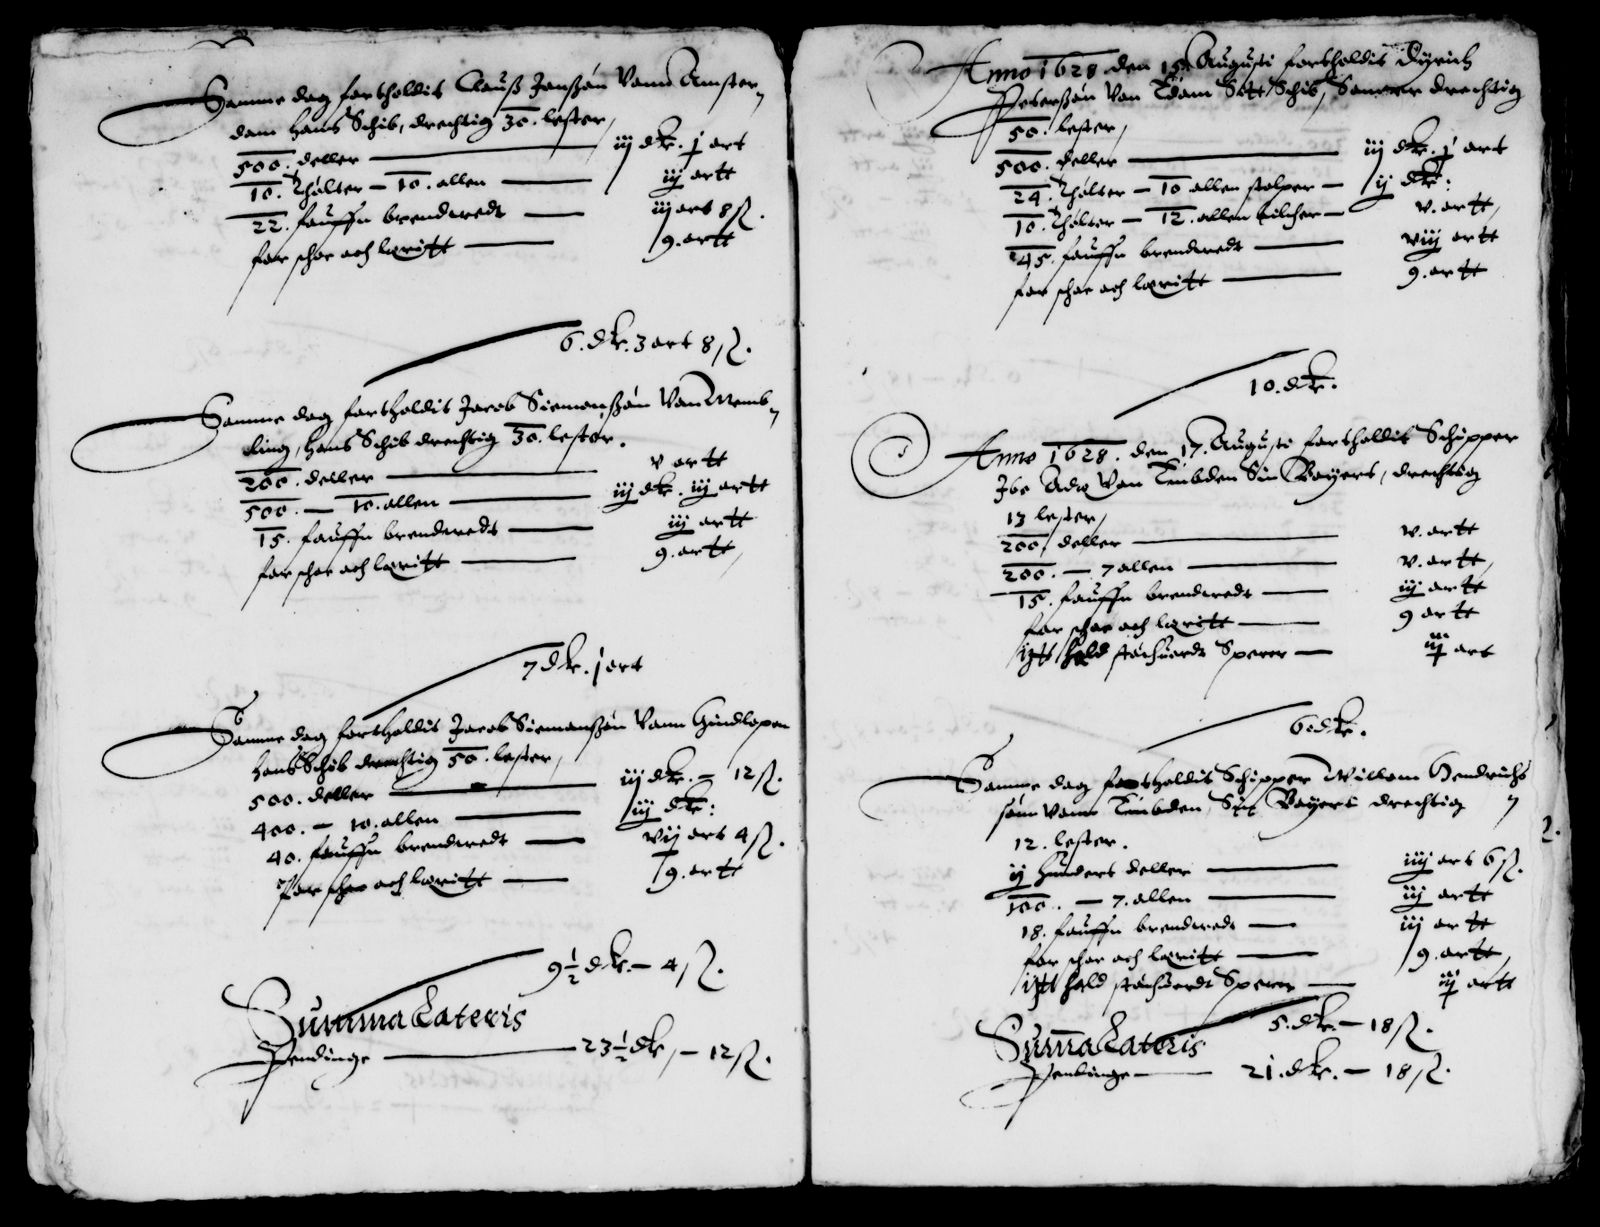 Samme dag fortholdit Clauß Janßøn Vann Amster-
dam hans Schib, drechtig 30. lester,
500. deller — iij dlr. j ort
10. Tholter — 10. allen — iij ortt
22. fauffn brendwedt — iij ort 8 ß.
for schor och loritt — 9. ortt
6. dlr. 3 ort 8 ß.
Samme dag fortholdit Jacob Siemonßøn Van Memb-
ling, hans Schib drechtig 30. lester.
200. deller — v ortt
500. — 10. allen — iij dlr. iij ortt
15. fauffn brendwedt — iij ortt
for schor och loritt — 9. ortt,
7 dlr. j ort
Samme dag fortholdit Jacob Siemonßøn Vann Hindlopen
hans Schib drechtig 50. lester,
500. deller — iij dlr. — 12 ß.
400. — 10. allen — iij dlr:
40. fauffn brendwedt — vij ort 4 ß.
For schor och loritt — 9. ortt
9½ dlr. — 4 ß.
Summa Lateris
Pendinge — 23½ dlr, — 12 ß.
Anno 1628 den 15. Augusti fortholdit Dyrich
Peterßøn Van Edam Sitt Schib, drechtig
50. lester,
500. deller — iij dlr. j ort
24. Tholter — 10 allen stolper — ij dlr:
10. Tholter — 12. allen — v. ortt,
45. fauffn brendwedt — viij ortt
for schor och loritt — 9. ortt
10. dlr.
Anno 1628. den 17. Augusti fortholdit Schipper
Van Embden Sin Boyert, drechtig
13 lester,
200. deller — v. ortt
200. — 7 allen — v. ortt,
15. fauffn brendwedt — iij ortt
for schor och loritt — 9 ortt
itt hold Sperer — ort
6 dlr.
Samme dag fortholdit Schipper Willom Hendrichs
søn vann Embden, Sit Boyert drechtig
12. lester.
ij hundert deller — iiij ort 6 ß.
100. — 7. allen — iij ortt
18. fauffn brendwedt — iij ortt
for schor och loritt — 9. ortt,
itt hold Sperer — ortt
5. dlr. — 18 ß.
Summa Lateris
Pendinge — 21. dlr. — 18 ß.